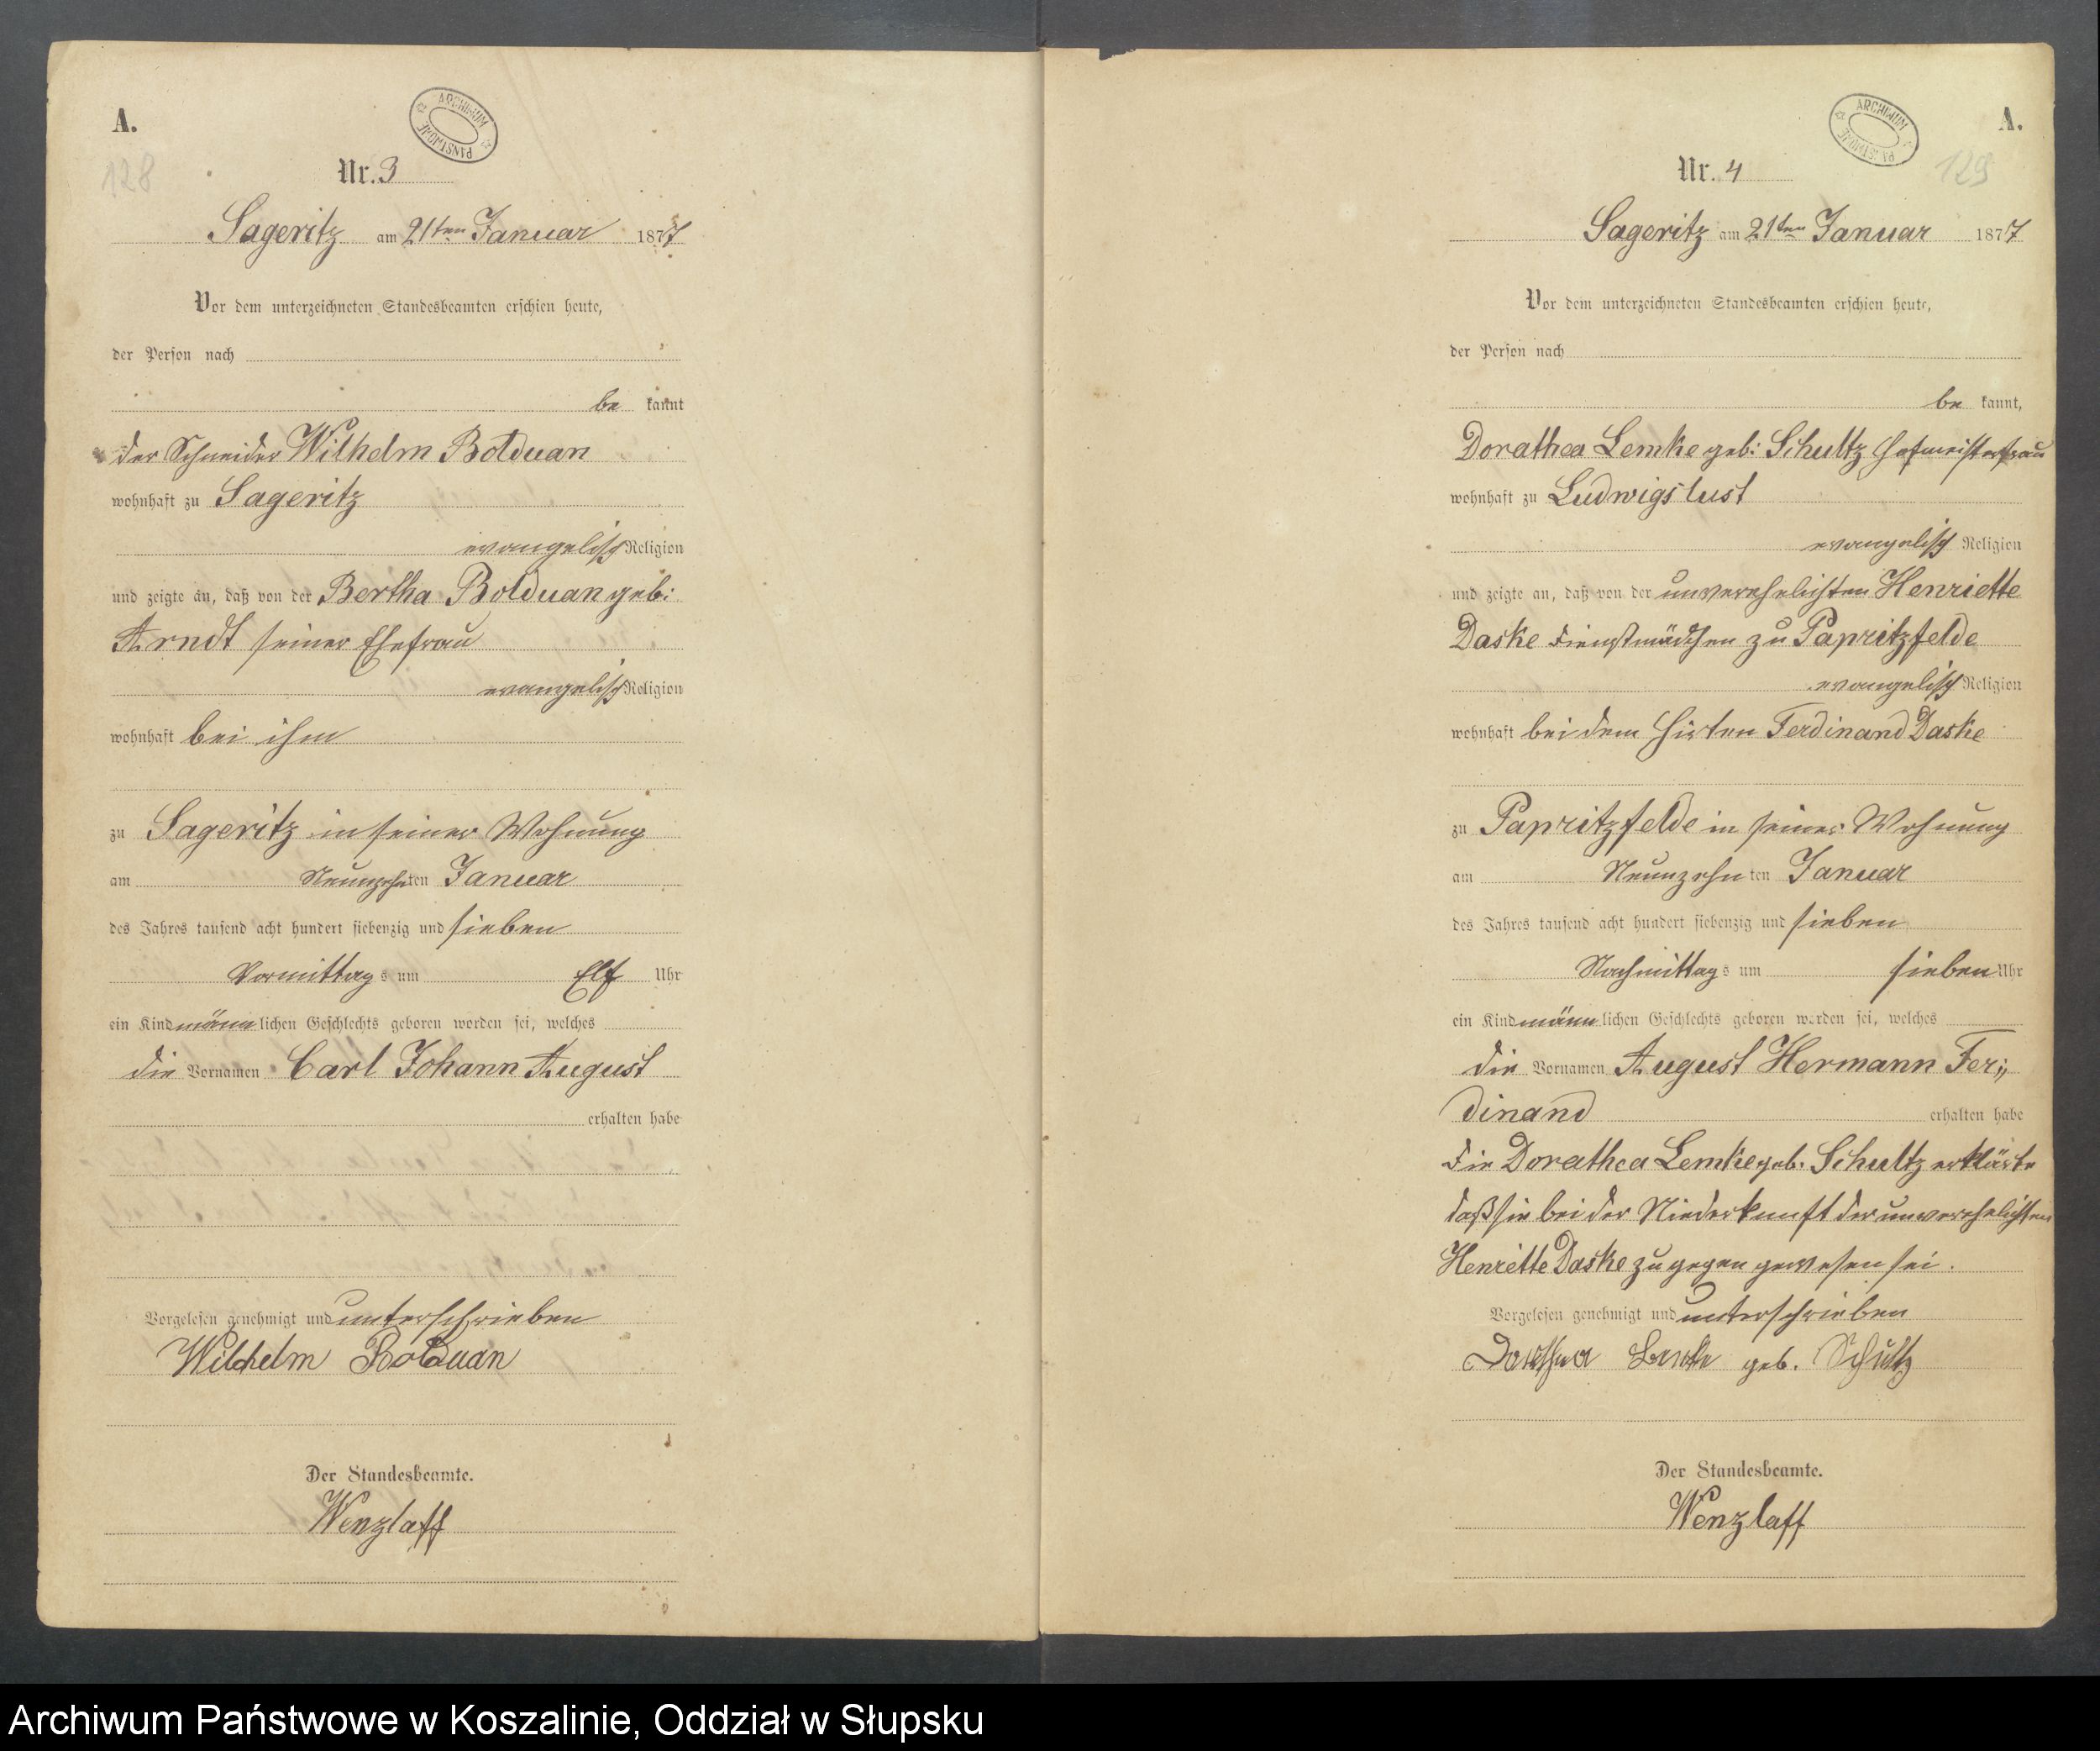 A.
ARCHIWUM PAŃSTWOWE
128
Nr. 3
Sageritz am 21ten Januar 1877
Vor dem unterzeichneten Standesbeamten erschien heute,
der Person nach
be kannt
der Schneider Wilhelm Bolduan
wohnhaft zu Sageritz
evangelisch Religion
und zeigte an, daß von der Bertha Bolduan geb:
Arndt seiner Ehefrau
evangelisch Religion
wohnhaft bei ihm
zu Sageritz in seiner Wohnung
am Neunzehnten Januar
des Jahres tausend acht hundert siebenzig und sieben
Vormittags um Elf Uhr
ein Kind männlichen Geschlechts geboren worden sei, welches
die Vornamen Carl Johann August
erhalten habe
Vorgelesen genehmigt und unterschrieben
Wilhelm Bolduan
Der Standesbeamte.
Wenzlaff
A.
ARCHIWUM PAŃSTWOWE
129
Nr. 4
Sageritz am 21ten Januar 1877
Vor dem unterzeichneten Standesbeamten erschien heute,
der Person nach
be kannt,
Dorathea Lemke geb: Schultz Hofmeisterfrau
wohnhaft zu Ludwigslust
evangelisch Religion
und zeigte an, daß von der unverehelichten Henriette
Daske Dienstmädchen zu Papritzfelde
evangelisch Religion
wohnhaft bei dem Hirten Ferdinand Daske
zu Papritzfelde in seiner Wohnung
am Neunzehnten Januar
des Jahres tausend acht hundert siebenzig und sieben
Nachmittags um sieben Uhr
ein Kind männlichen Geschlechts geboren worden sei, welches
die Vornamen August Hermann Fer„
dinand erhalten habe
Die Dorathea Lemke geb. Schultz erklärte
daß sie bei der Niederkunft der unverehelichten
Henriette Daske zugegen gewesen sei.
Vorgelesen genehmigt und unterschrieben
Dorthea Lemke geb. Schultz
Der Standesbeamte.
Wenzlaff
Archiwum Państwowe w Koszalinie, Oddział w Słupsku